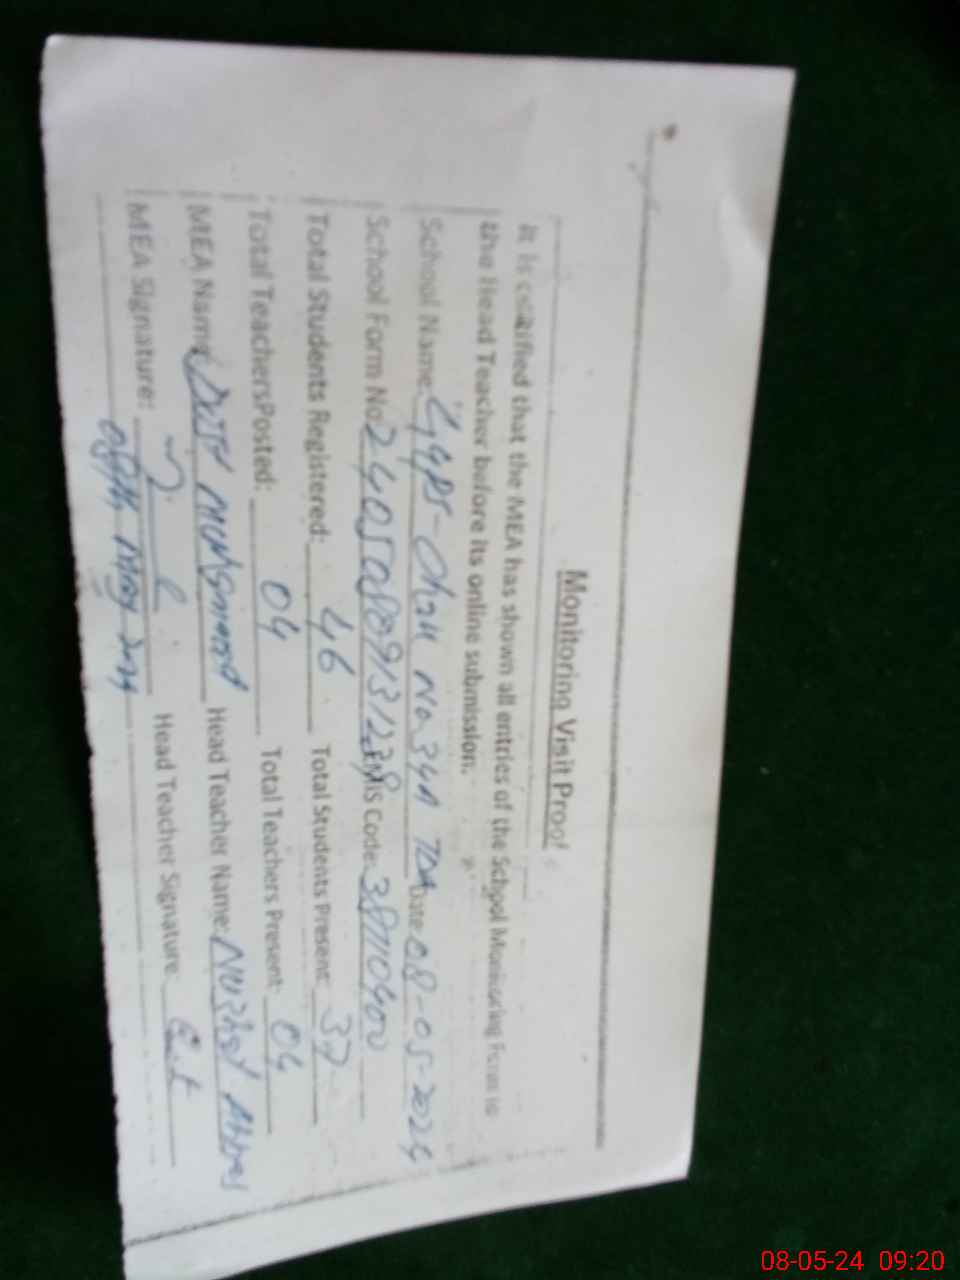 Monitoring Visit Proof
It is certified that the MEA has shown all entries of the School Monitoring Form is
the Head Teacher before its online submission.
School Name: GGPS-Chak No. 34A TDA Date: 08-05-2024
School Form No: EMIS Code:
Total Students Registered: 46 Total Students Present: 37
Total Teachers Posted: 04 Total Teachers Present: 04
MEA Name: Muhammad Head Teacher Name: Nuzhat Abbas
MEA Signature: Head Teacher Signature:
08th May 2024
08-05-24 09:20